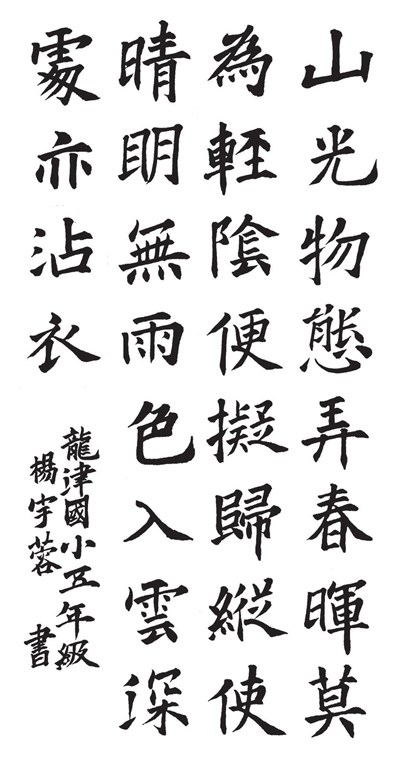 山光物態弄春暉莫
為輕陰便擬歸縱使
晴明無雨色入雲深
處亦沾衣
龍津國小五年級
楊宇蓉 書